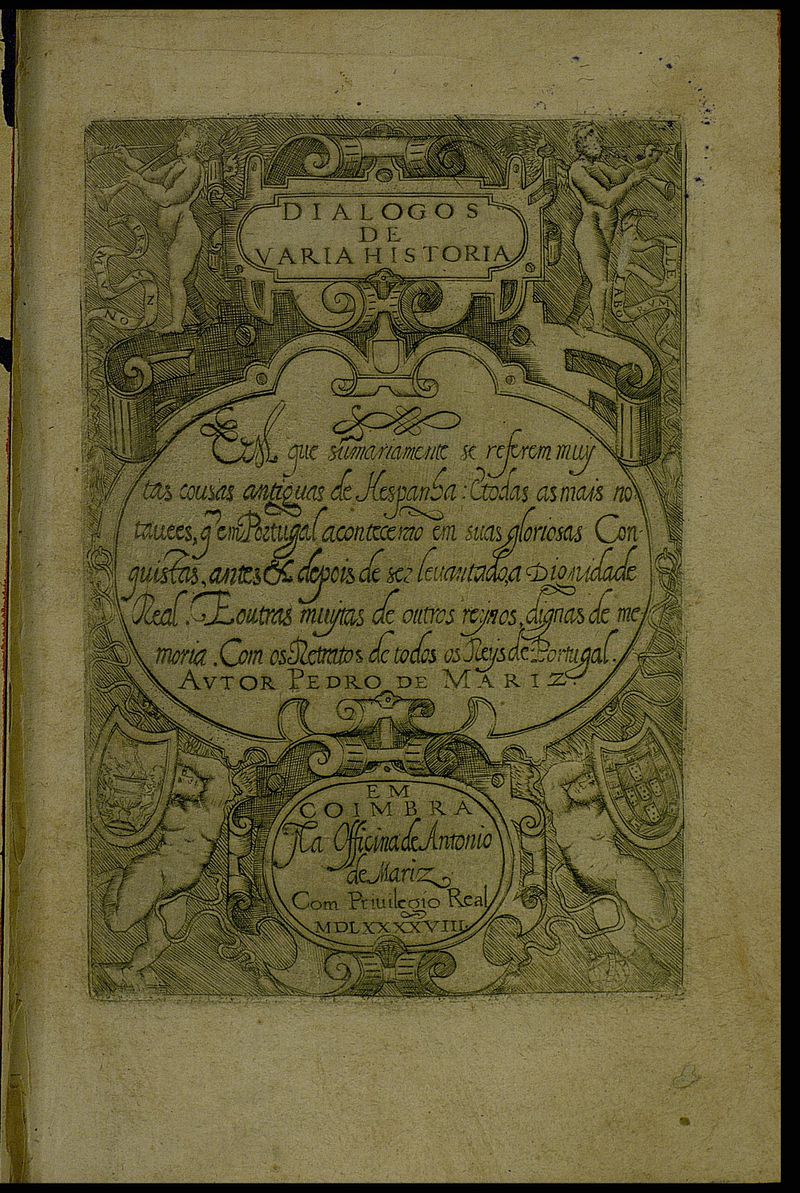 DIALOGOS
DE
VARIA HISTORIA
Em que sũmariamente se referem muy
tas cousas antiguas de Hespanha: E todas as mais no
tauees, q̃ em Portugal acontecerão em suas gloriosas Con-
quistas, antes & depois de ser leuantado, a Dignidade
Real. E outras muytas de outros reynos, dignas de me
moria. Com os Retratos de todos os Reys de Portugal.
AVTOR PEDRO DE MARIZ.
EM
COIMBRA
Na Officina de Antonio
de Mariz
Com Priuilegio Real
MDLXXXXVIII.